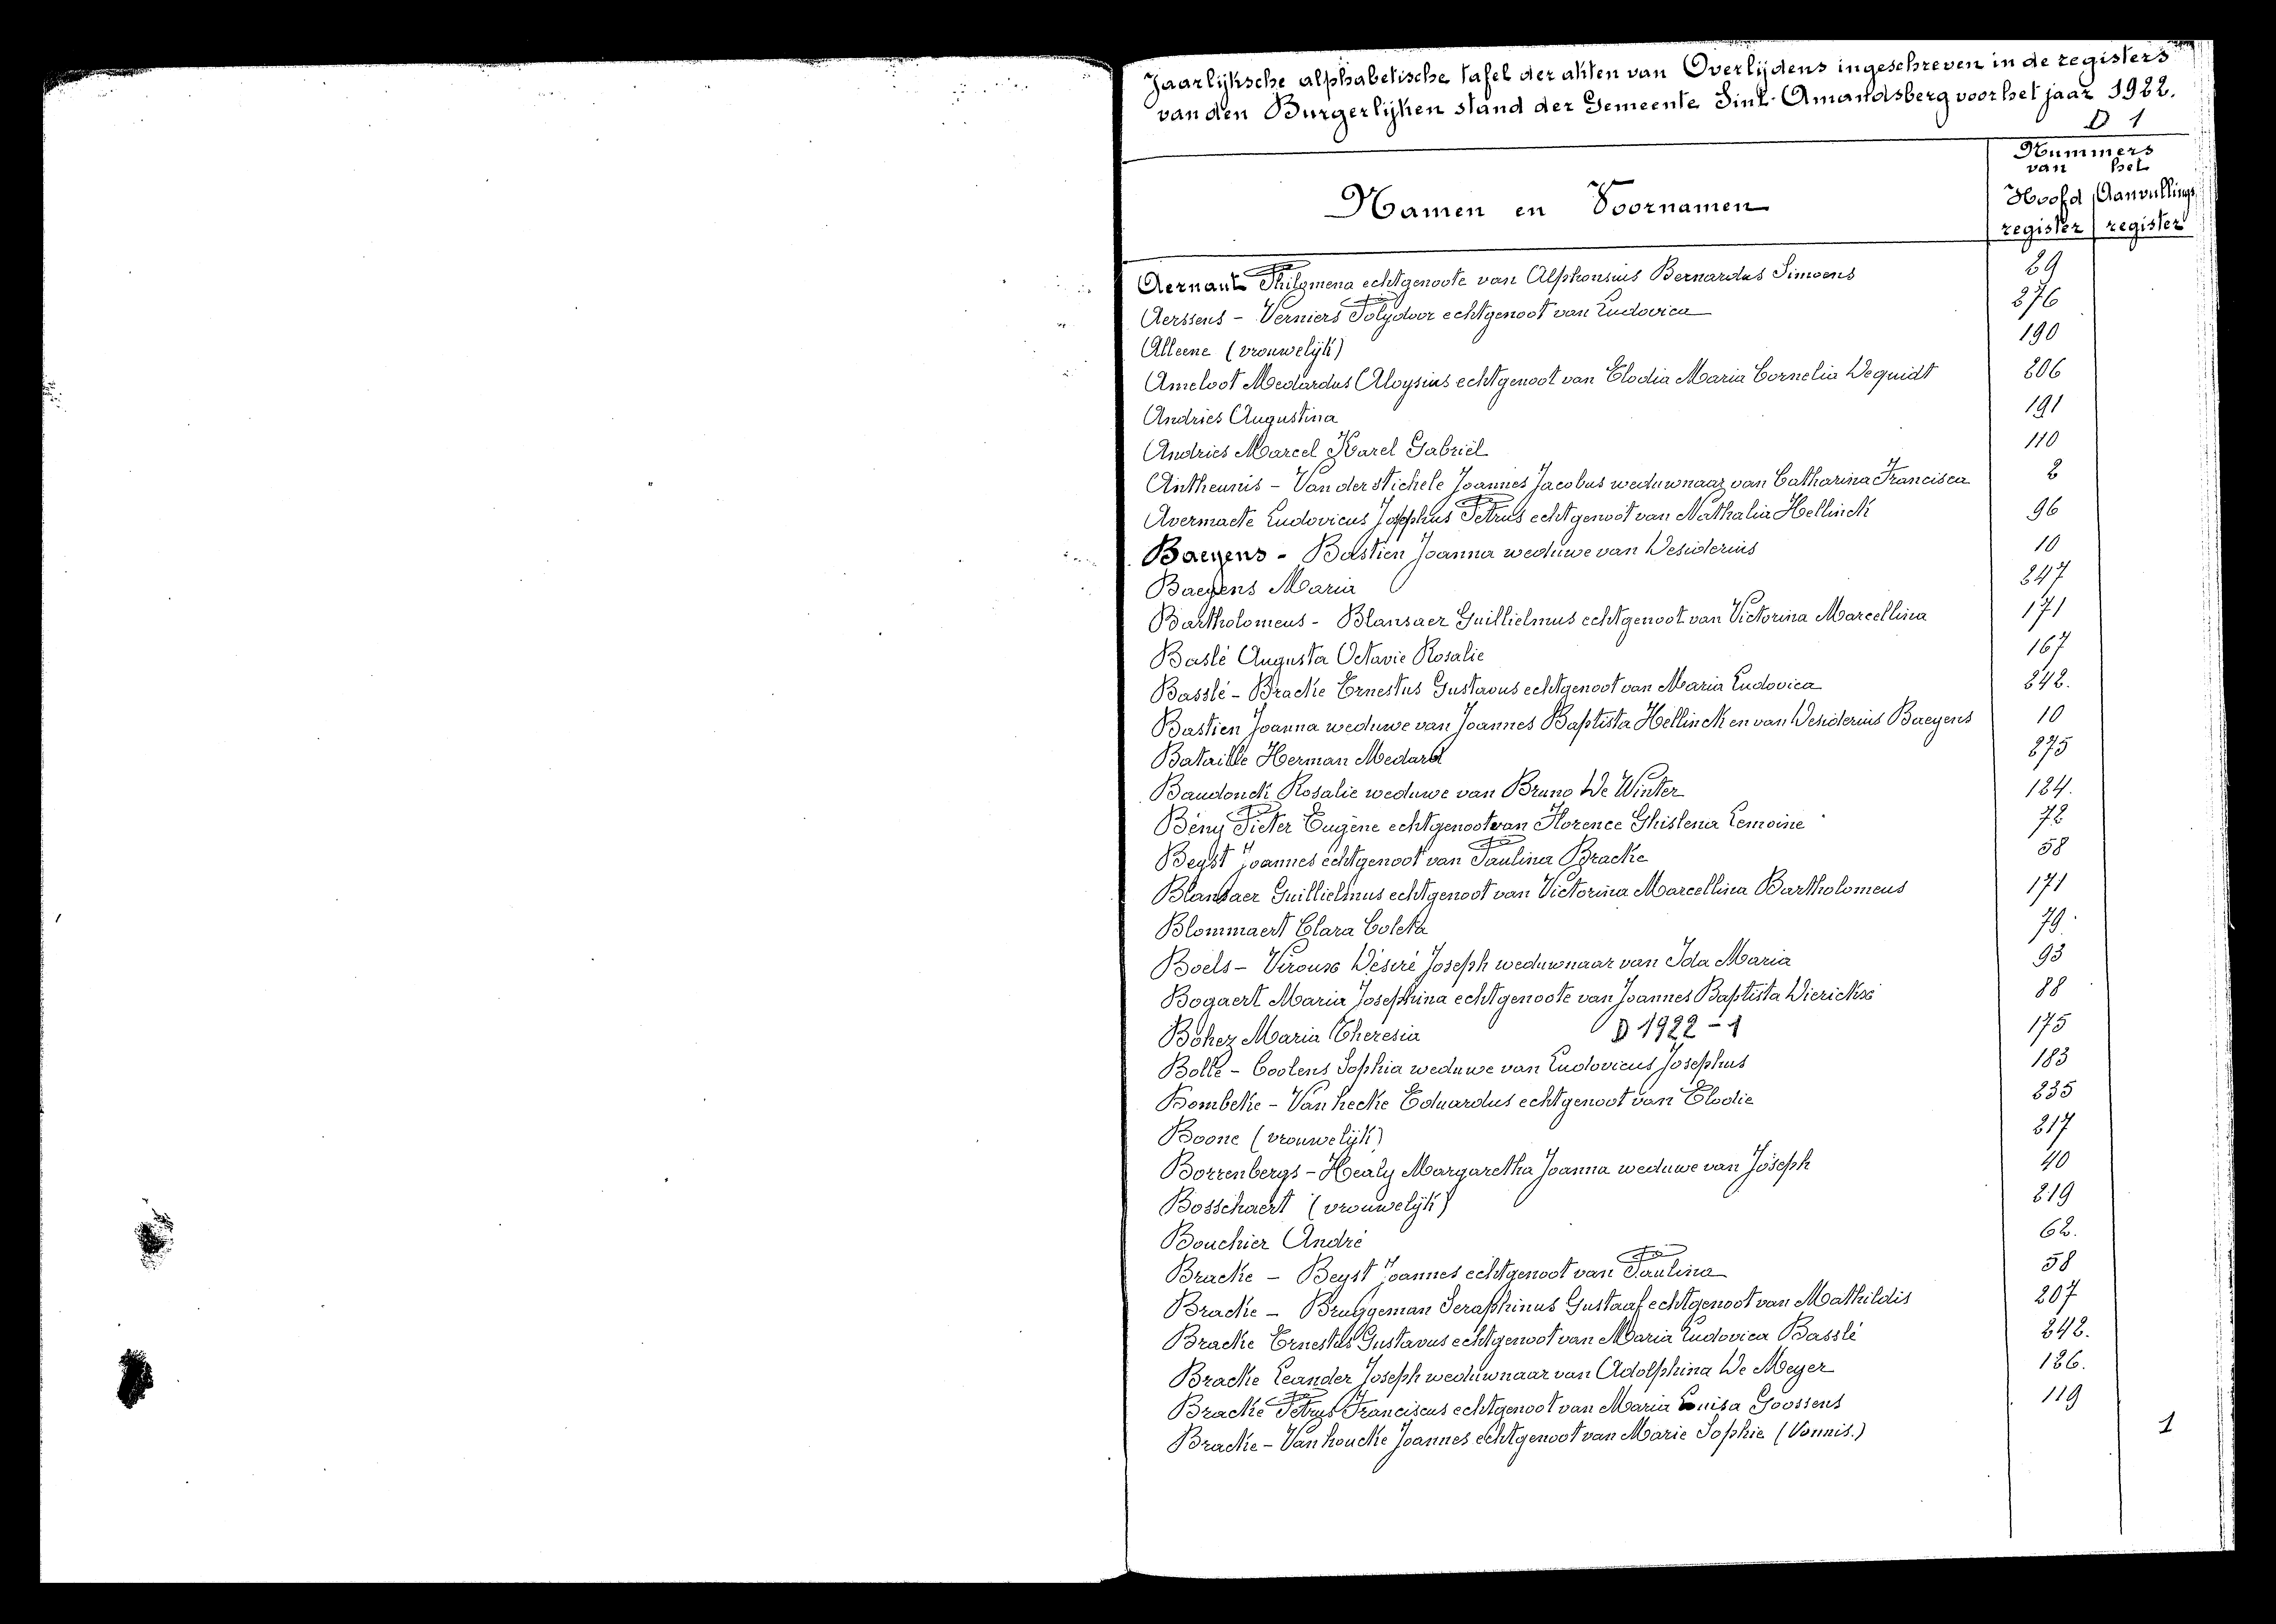 Jaarlijksche alphabetische tafel der akten van Overlijdens ingeschreven in de registers
van den Burgerlijken stand der Gemeente Sint-Amandsberg voor het jaar 1922.
D 1
Namen en Voornamen
Nummers
van het
Hoofd Aanvullings
register register
Aernaut Philomena echtgenoote van Alphonsius Bernardus Simoens 29
Aerssens - Verniers Polydoor echtgenoot van Ludovica 276
Alleene (vrouwelijk) 190
Ameloot Medardus Aloysius echtgenoot van Elodia Maria Cornelia Dequidt 206
Andries Augustina 191
Andries Marcel Karel Gabriël 110
Antheunis - Van der stichele Joannes Jacobus weduwnaar van Catharina Francisca 2
Avermaete Ludovicus Josephus Petrus echtgenoot van Nathalia Hellinck 96
Baeyens - Bastien Joanna weduwe van Desiderius 10
Baeyens Maria 247
Bartholomeus - Blansaer Guillielmus echtgenoot van Victorina Marcellina 171
Baslé Augusta Octavie Rosalie 167
Basslé - Bracke Ernestus Gustavus echtgenoot van Maria Ludovica 242.
Bastien Joanna weduwe van Joannes Baptista Hellinck en van Desiderius Baeyens 10
Bataille Herman Medard 275
Baudonck Rosalie weduwe van Bruno De Winter 124.
Bény Pieter Eugène echtgenoot van Florence Ghislena Lemoine 72
Beyst Joannes echtgenoot van Paulina Bracke 58
Blansaer Guillielmus echtgenoot van Victorina Marcellina Bartholomeus 171
Blommaert Clara Coleta 79.
Boels - Viroux Désiré Joseph weduwnaar van Ida Maria 93
Bogaert Maria Josephina echtgenoote van Joannes Baptista Dierickx 88
Bohez Maria Theresia D 1922 - 1 175
Bolle - Coolens Sophia weduwe van Ludovicus Josephus 183
Bombeke - Van hecke Eduardus echtgenoot van Elodie 235
Boone (vrouwelijk) 217
Borrenbergs - Healy Margaretha Joanna weduwe van Joseph 40
Bosschaert (vrouwelijk) 219
Bouchier André 62.
Bracke - Beyst Joannes echtgenoot van Paulina 58
Bracke - Bruggeman Seraphinus Gustaaf echtgenoot van Mathildis 207
Bracke Ernestus Gustavus echtgenoot van Maria Ludovica Basslé 242.
Bracke Leander Joseph weduwnaar van Adolphina De Meyer 126.
Bracke Petrus Franciscus echtgenoot van Maria Luisa Goossens 119
Bracke - Van houcke Joannes echtgenoot van Marie Sophie (Vonnis.) 1